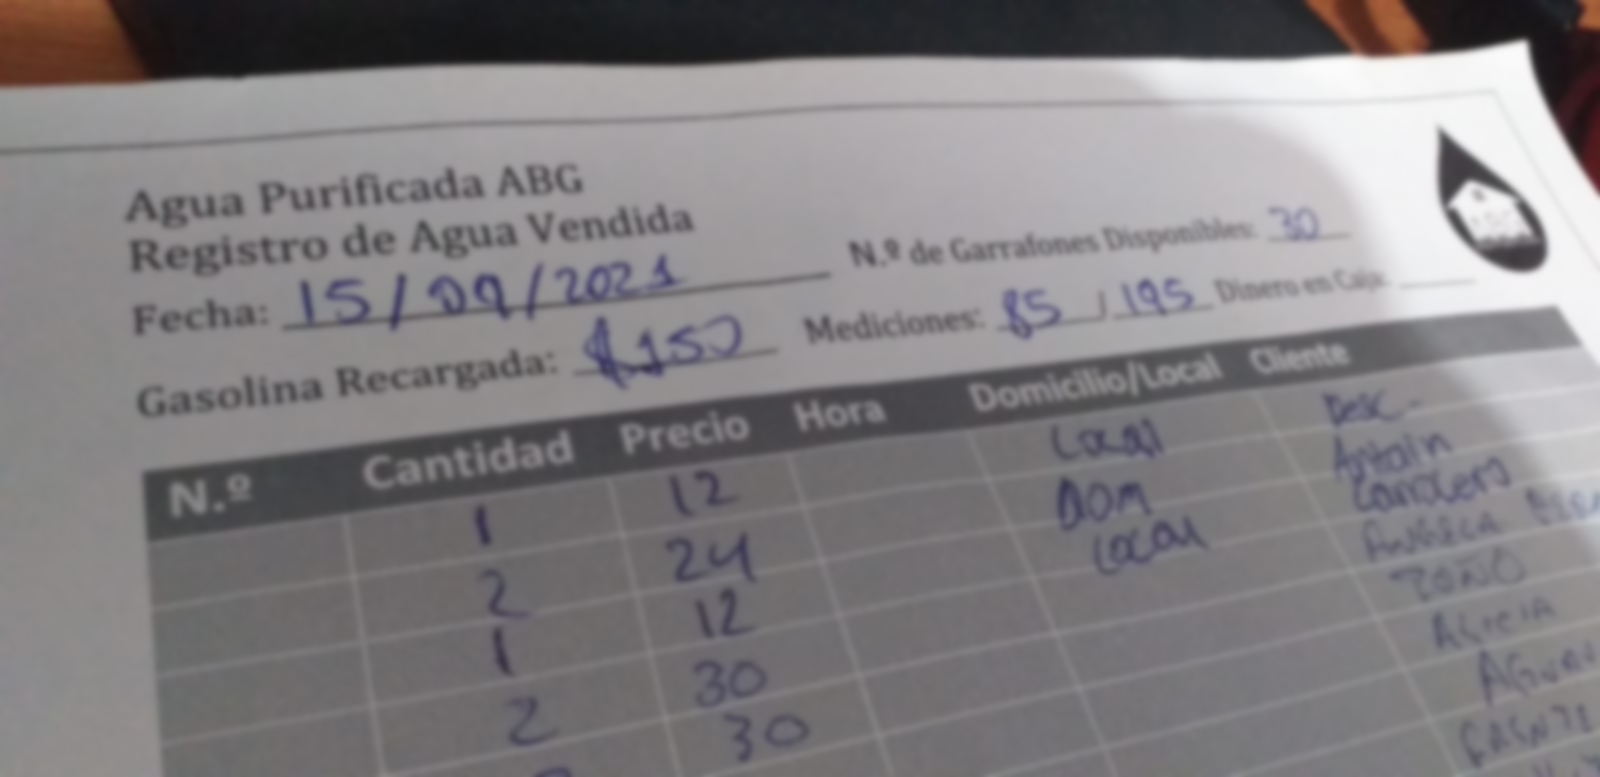 Agua Purificada ABG
Registro de Agua Vendida
Fecha: 15/09/2021 N.º de Garrafones Disponibles: 30
Gasolina Recargada: $150 Mediciones: 85 / 195 Dinero en Caja:
N.º Cantidad Precio Hora Domicilio/Local Cliente
1 12 Local Desc.
2 24 DOM
1 12 LOCAL
2 30
30 TOÑO
ALICIA